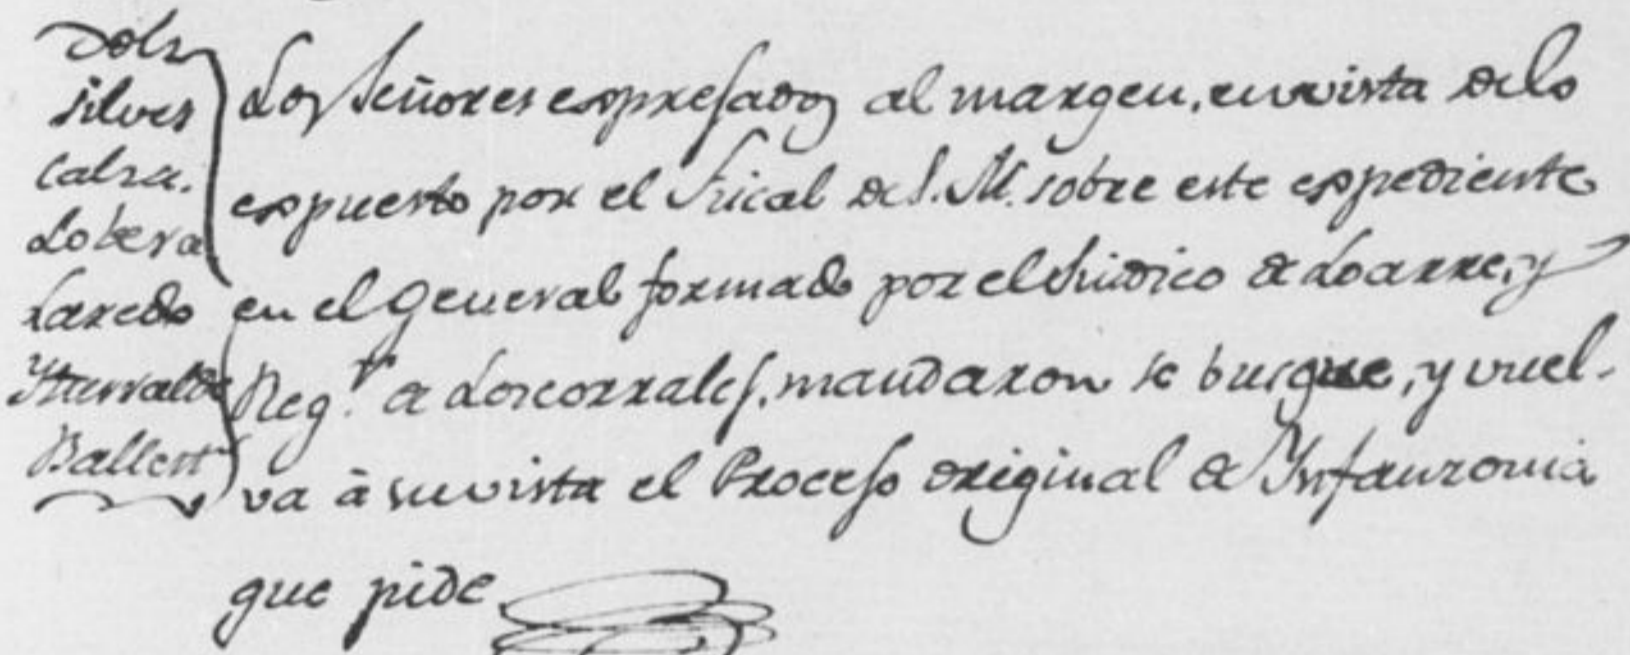 Dolz
Silves
Calza.
Lobera
Laredo
Yturralde
Ballest.r
Los Señores expresados al margen, en vista de lo
expuesto por el Fiscal de S. M. sobre este expediente
en el General formado por el Síndico de Loarre, y
Reg.r de Loscorrales, mandaron se busque, y vuel-
va à su vista el Proceso original de Ynfanzonia
que pide